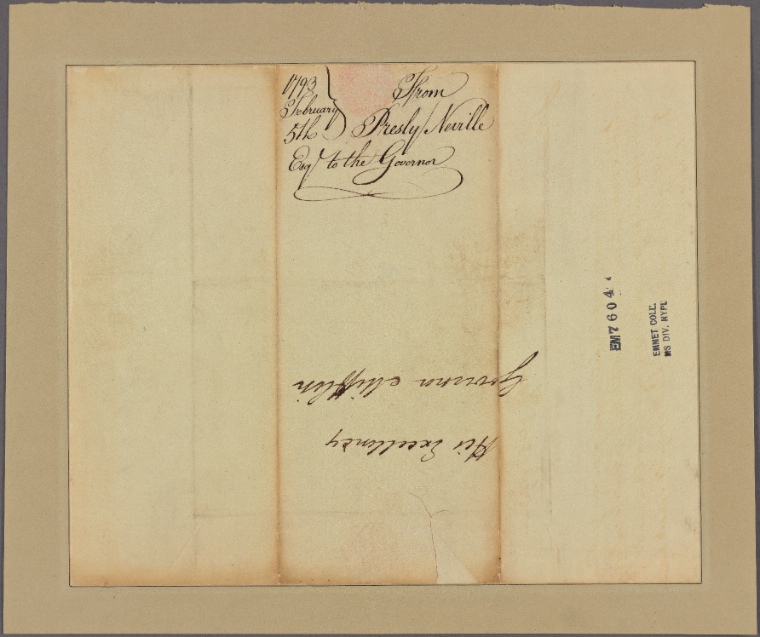 1793 From
February
5th Presly Neville
Esqr to the Governor
His Excellency
Governor Mifflin
EM7604
EMMET COLL.
MS DIV. NYPL